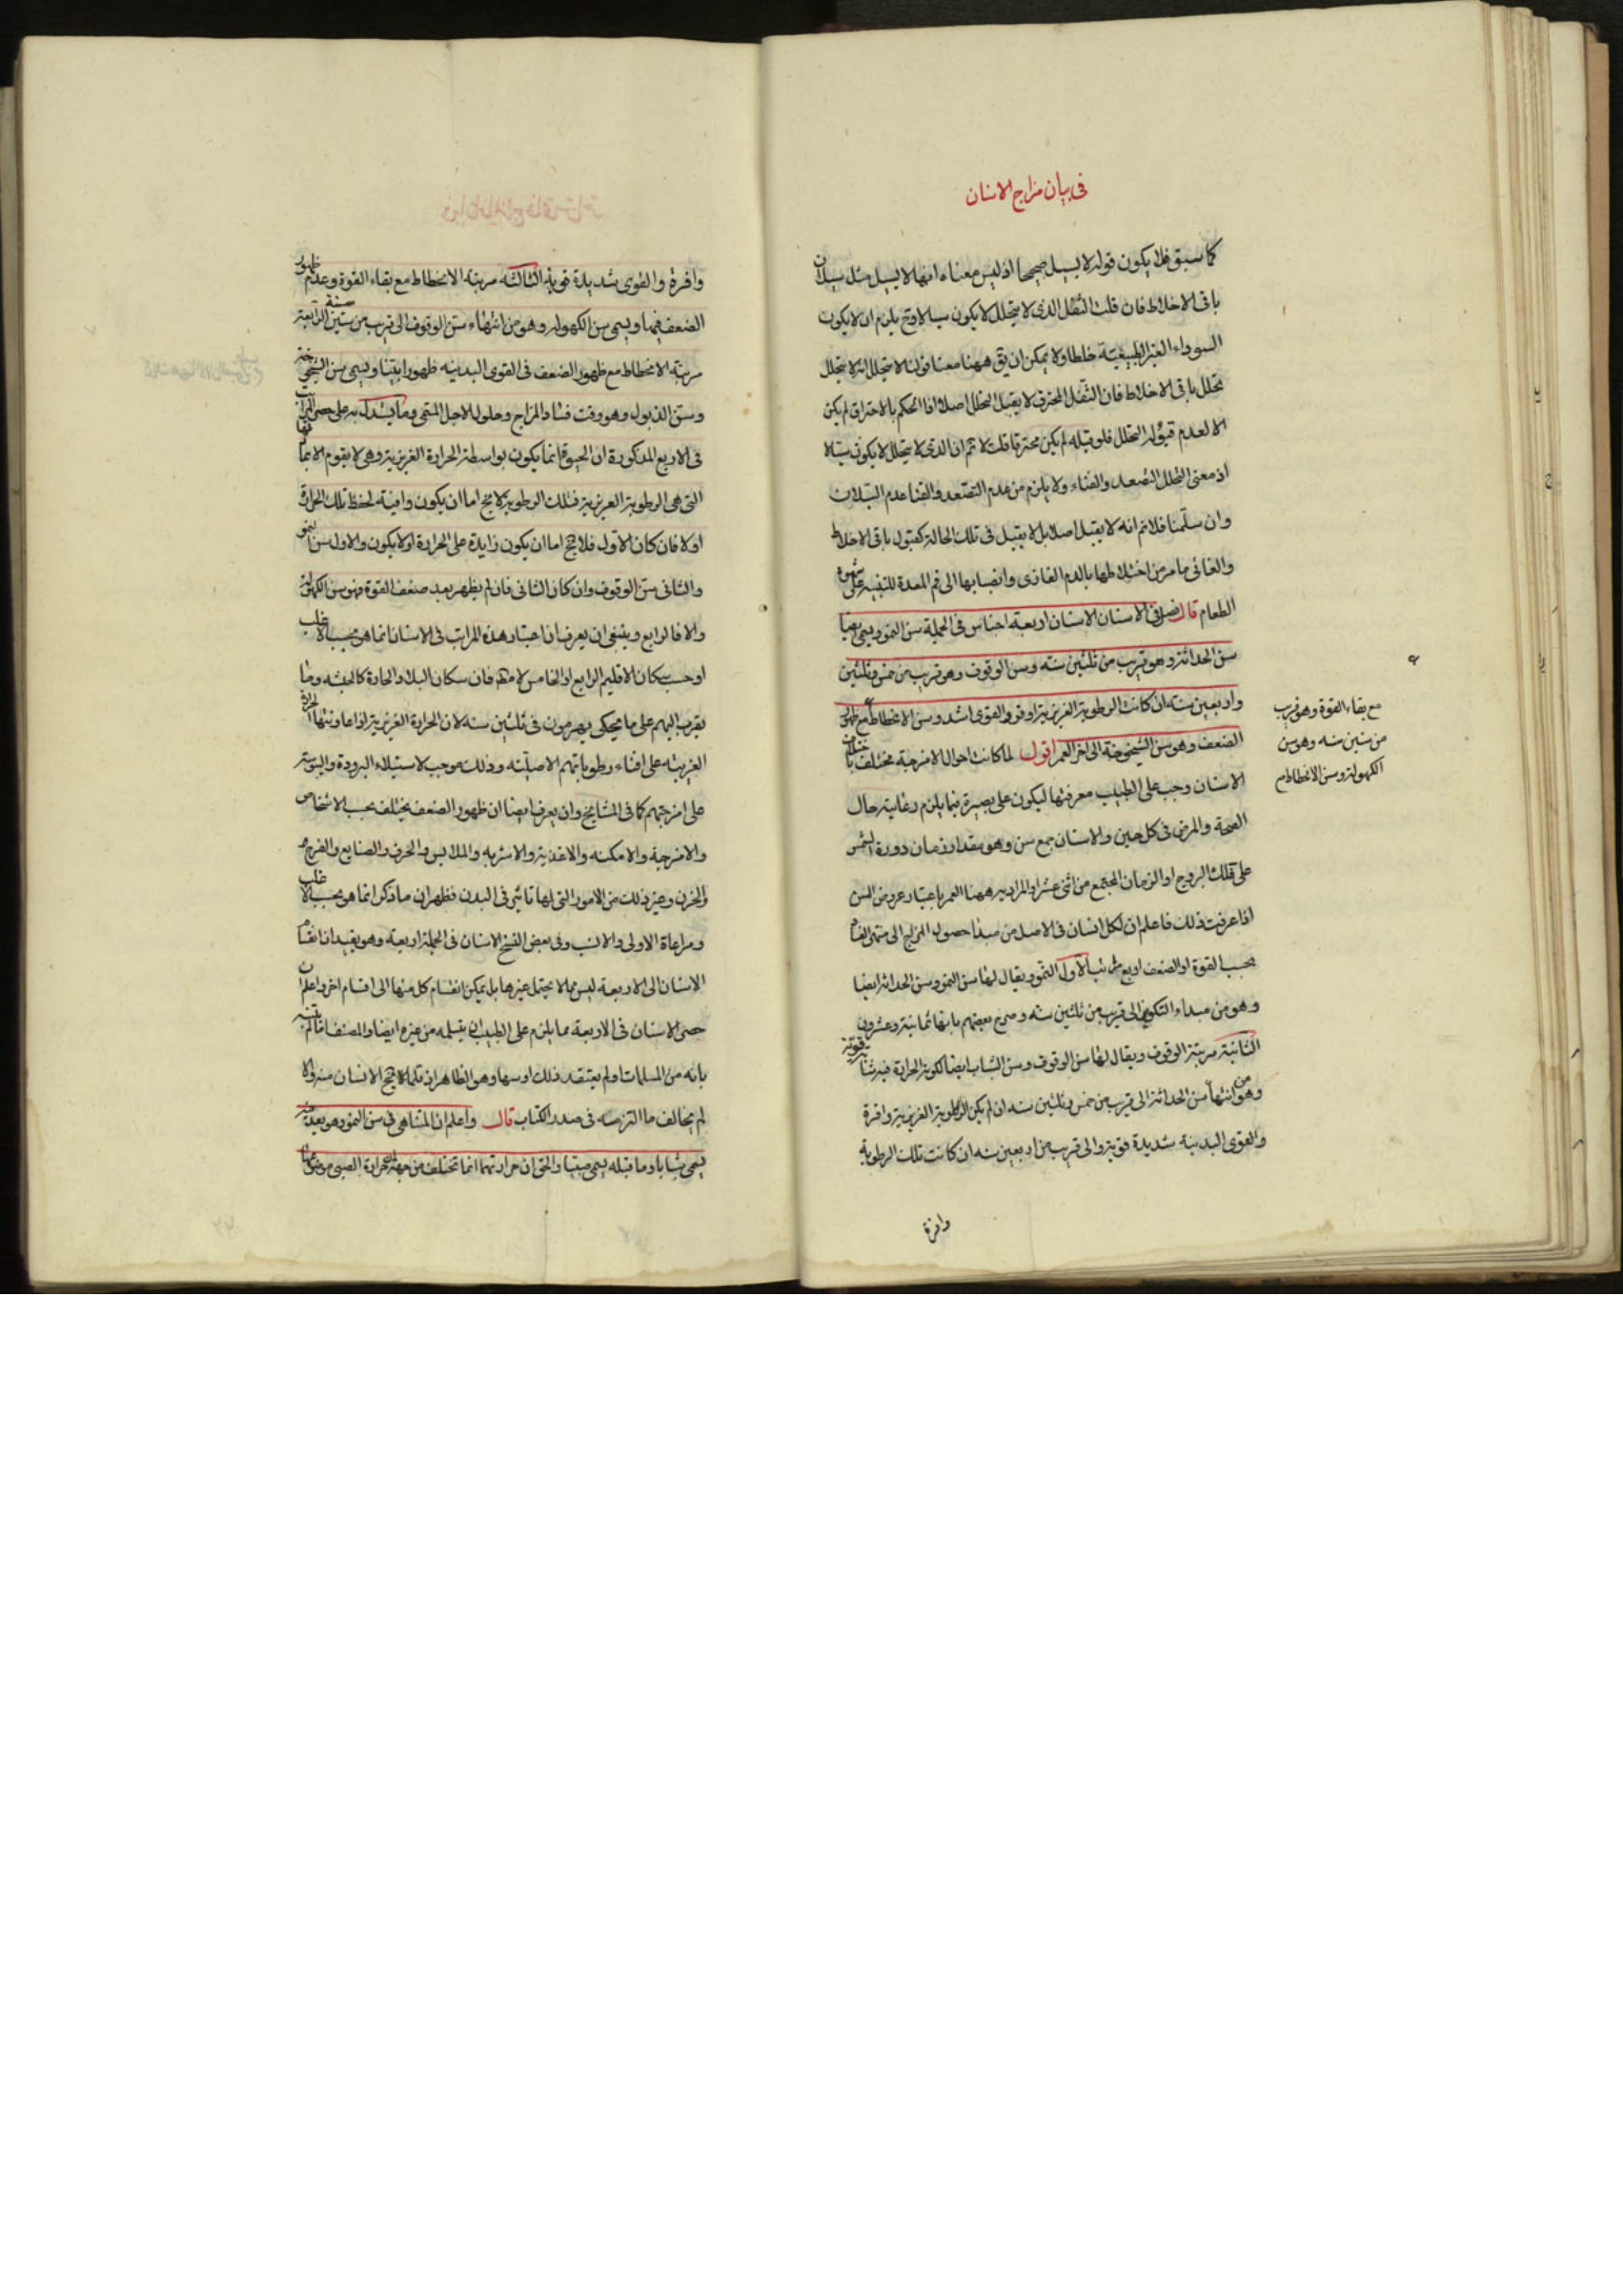 فی بیان مزاج الاسنان
كما سبق فلا يكون قوله لا يسيل صحيحا اذ ليس معناه انها لا يسيل مثل سيلان
باقى الاخلاط فان قلت الثفل الذى لا يتحلل لا يكون سيالا وح يلزم ان لا يكون
السوداء الغير الطبيعية خلطا ولا يمكن ان يق ههنا معنا قولنا لا يتحلل انه لا يتحلل
تحلل باقى الاخلاط فان الثفل المحترق لا يقبل التحلل اصلا اذا الحكم بالاحتراق لم يكن
الا لعدم قبوله التحلل فلو قبله لم يكن محترقا قلت لا ثم ان الذى لا يتحلل لا يكون سيالا
اذ معنى التحلل التصعد والفناء ولا يلزم من عدم التصعد والفنا عدم السيلان
وان سلمنا فلا نم انه لا يقبل اصلا بل لا يقبل فى تلك الحالة كقبول باقى الاخلاط
والغائى ما مر من اختلاطها بالدم الغاذى وانصبابها الى فم المعدة للتنبيه على شهوة
الطعام قال فصل فى الاسنان الاسنان اربعة اجناس فى الجملة سن النمو ويسمى ايضا
سن الحداثة وهو قريب من ثلثين سنه وسن الوقوف وهو قريب من خمس وثلثين
واربعين سنة ان كانت الرطوبة الغريزية اوفر والقوى اشد وسن الانحطاط مع ظهور
الضعف وهو سن الشيخوخة الى اخر العمر اقول لما كانت احوال الامزجة مختلفة باختلاف
الاسنان وجب على الطبيب معرفتها ليكون على بصيرة فيما يلزم رعايته حال
الصحة والمرض فى كل حين والاسنان جمع سن وهو مقدار زمان دورة الشمس
على فلك البروج او الزمان المجتمع من اثنى عشر او المراد به ههنا العمر باعتبار عروض السن
اذا عرفت ذلك فاعلم ان لكل انسان فى الاصل من مبدا حصول المزاج الى منتهى البقاء
بحسب القوة او الضعف اربع مراتب الاول النمو ويقال لها سن النمو وسن الحداثة ايضا
وهو من مبداء التكون الى قريب من ثلثين سنه وصرح بعضهم بانها ثمانية وعشرون
الثانية مرتبة الوقوف ويقال لها سن الوقوف وسن الشباب ايضا لكون الحرارة فيه شابة قوية
وهو من انتهاء سن الحداثة الى قريب من خمس وثلثين سنه ان لم يكن الرطوبة الغريزية وافرة
والقوى البدنية شديدة قوية والى قريب من اربعين سنه ان كانت تلك الرطوبة
وافرة
مع بقاء القوة وهو قريب
من ستين سنه وهو سن
الكهولة وسن الانحطاط م
وافرة والقوى شديدة قوية الثالثه مرتبة الانحطاط مع بقاء القوة وعدم ظهور
الضعف فيها ويسمى سن الكهولة وهو من انتهاء سن الوقوف الى قريب من ستين سنة الرابعة
مرتبة الانحطاط مع ظهور الضعف فى القوى البدنيه ظهورا بينا ويسمى سن الشيخوخة
وسن الذبول وهو وقت فساد المزاج وحلول الاجل المسمى وما يستدل به على حصر المراتب
فى الاربع المذكورة ان الحيوة انما يكون بواسطة الحرارة الغريزية وهى لا يقوم الا بمادتها
التى هى الرطوبة الغريزية فتلك الرطوبة لا يخ اما ان يكون وافية لحفظ تلك الحرارة
اولا فان كان الاول فلا يخ اما ان يكون زايدة على الحرارة اولا يكون والاول سن النمو
والثانى سن الوقوف وان كان الثانى فان لم يظهر بعد ضعف القوة فهو سن الكهولة
والا فالرابع وينبغى ان يعرف ان اعتبار هذه المراتب فى الاسنان انما هو بحسب الاغلب
او حسب سكان الاقليم الرابع او الخامس لا مطه فان سكان البلاد الحارة كالحبشه وما
يقرب اليهم على ما يحكى يهرمون فى ثلثين سنه لان الحرارة الغريزية اذا عاونتها الحرارة
الغريبه على افناء رطوباتهم الاصليه وذلك موجب لاستيلاء البرودة واليبوسة
على امزجتهم كما فى المشايخ وان يعرف ايضا ان ظهور الضعف يختلف بحسب الاشخاص
والامزجة والامكنه والاغذية والاشربه والملابس والحرف والصنايع والفرح
والحزن وغير ذلك من الامور التى لها تاثير فى البدن فظهر ان ما ذكر انما هو بحسب الاغلب
ومراعاة الاولى والانسب وفى بعض النسخ الاسنان فى الجملة اربعه وهو يفيد ان انقسام
الاسنان الى الاربعة ليس مما لا يحتمل غيرها بل يمكن انقسام كل منها الى اقسام اخر واعلم ان
حصر الاسنان فى الاربعة مما يلزم على الطبيب ان يتسلمه من غيره ايضا والمصنف لما لم ينبه
بانه من المسلمات ولم يعتقد ذلك او سها وهو الظاهر ان قلما لا يخ الانسان منه والا
لم يخالف ما التزمه فى صدر الكتاب قال واعلم ان المتناهى فى سن النمو وهو بعيد
يسمى شابا وما قبله يسمى صبيا والحق ان حرارتهما انما تختلف من جهة ان حرارة الصبى